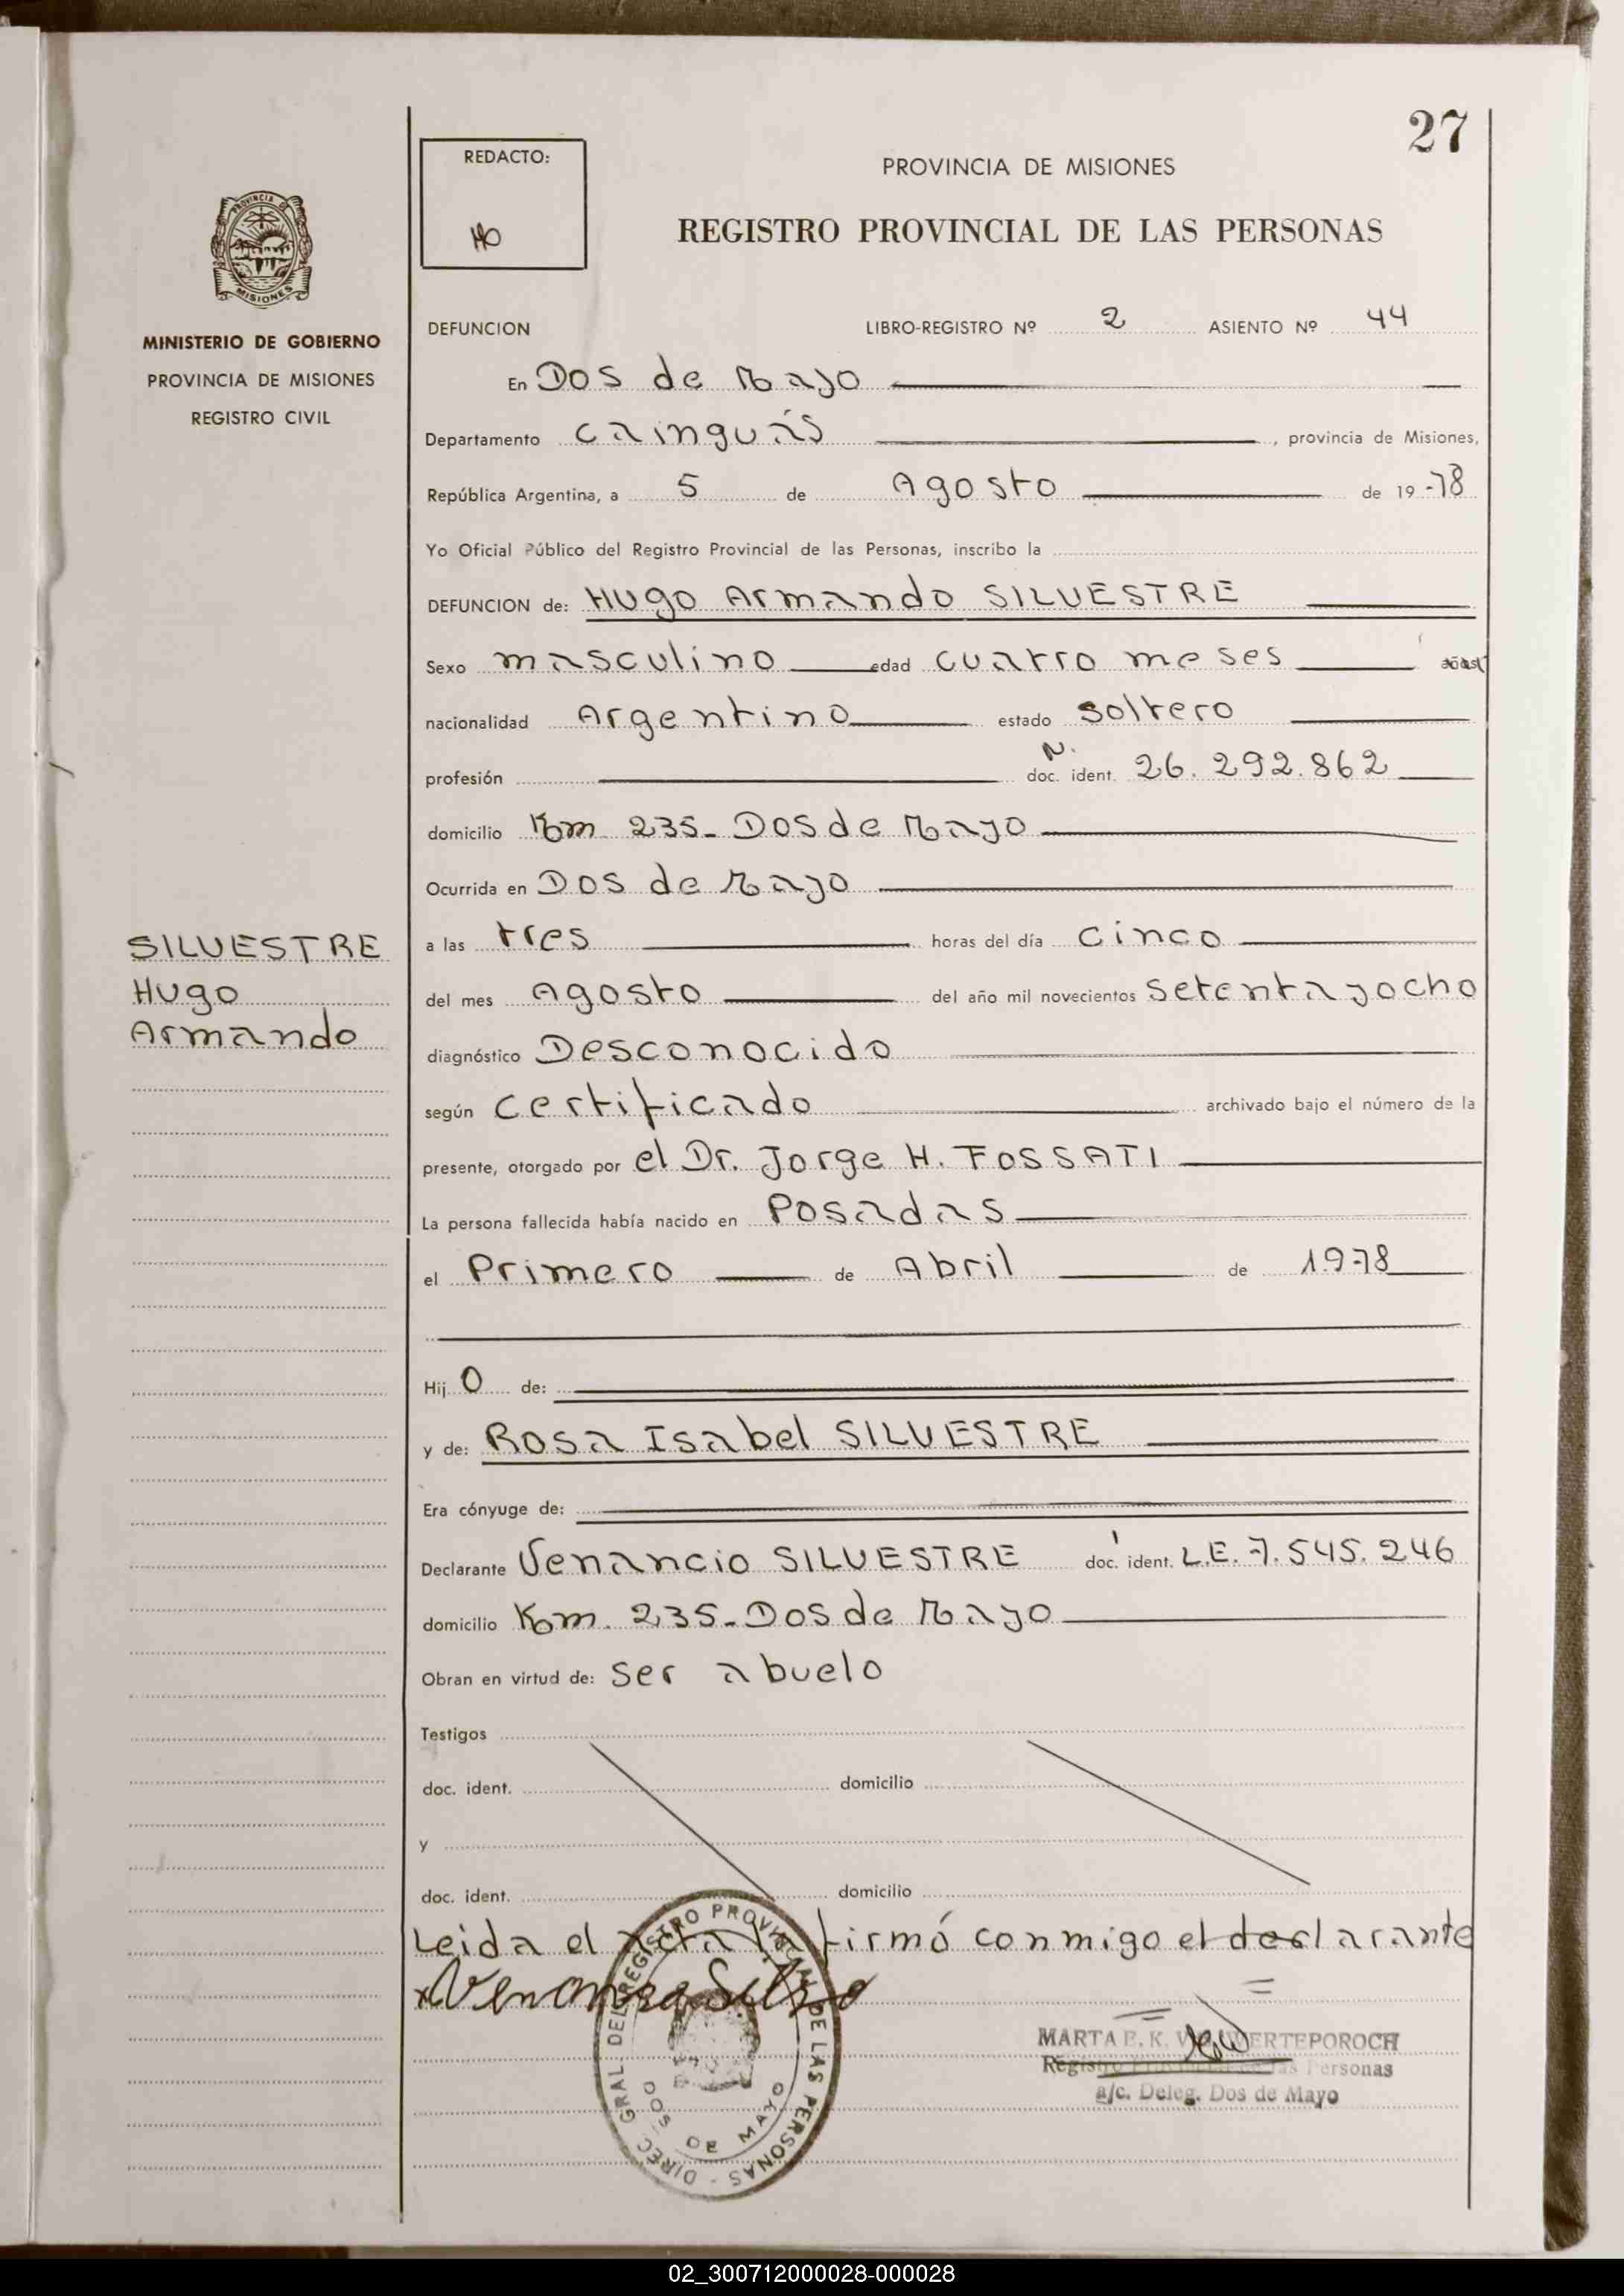 27
REDACTO:
PROVINCIA DE MISIONES
REGISTRO PROVINCIAL DE LAS PERSONAS
PROVINCIA DE MISIONES
MINISTERIO DE GOBIERNO
PROVINCIA DE MISIONES
REGISTRO CIVIL
DEFUNCION LIBRO-REGISTRO Nº 2 ASIENTO Nº 44
En Dos de Mayo
Departamento Cainguás, provincia de Misiones,
República Argentina, a 5 de Agosto de 19 78
Yo Oficial Público del Registro Provincial de las Personas, inscribo la
DEFUNCION de: Hugo Armando SILVESTRE
Sexo masculino edad cuatro meses años
nacionalidad Argentino estado soltero
profesión doc. N. ident. 26.292.862
domicilio Km 235- Dos de Mayo
Ocurrida en Dos de Mayo
SILVESTRE
Hugo
Armando
a las tres horas del día cinco
del mes Agosto del año mil novecientos setenta y ocho
diagnóstico Desconocido
según certificado archivado bajo el número de la
presente, otorgado por el Dr. Jorge H. FOSSATI
La persona fallecida había nacido en Posadas
el Primero de Abril de 1978
Hij o de:
y de: Rosa Isabel SILVESTRE
Era cónyuge de:
Declarante Venancio SILVESTRE doc. ident. L.E. 7.545.246
domicilio Km. 235- Dos de Mayo
Obran en virtud de: ser abuelo
Testigos
doc. ident. domicilio
y
doc. ident. domicilio
Leida el acta la firmó conmigo el declarante
DIREC. GRAL. DEL REGISTRO PROVINCIAL DE LAS PERSONAS -
DOS DE MAYO
MARTA E. K. WERTEPOROCH
Registro Provincial de las Personas
a/c. Deleg. Dos de Mayo
02_300712000028-000028